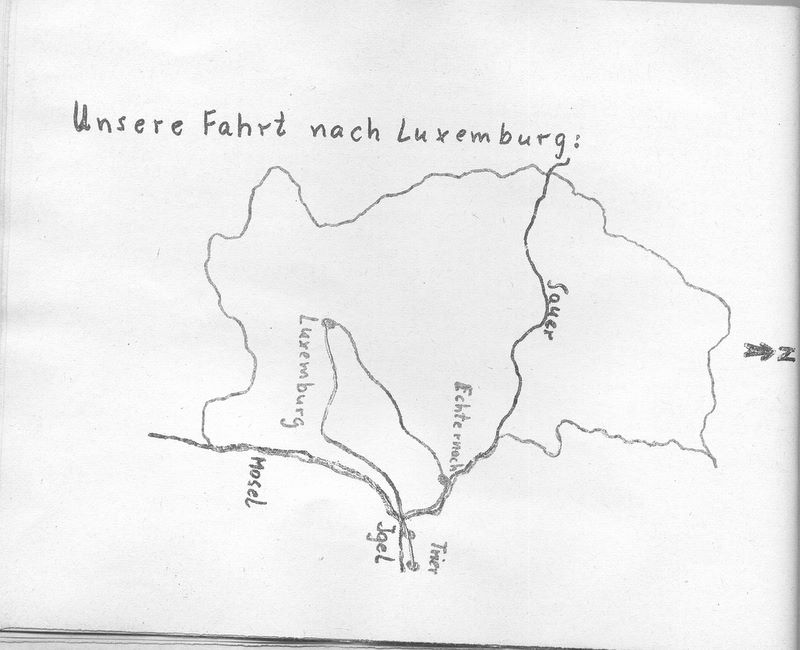 Unsere Fahrt nach Luxemburg:
Sauer
N
Luxemburg
Echternach
Mosel
Jgel
Trier